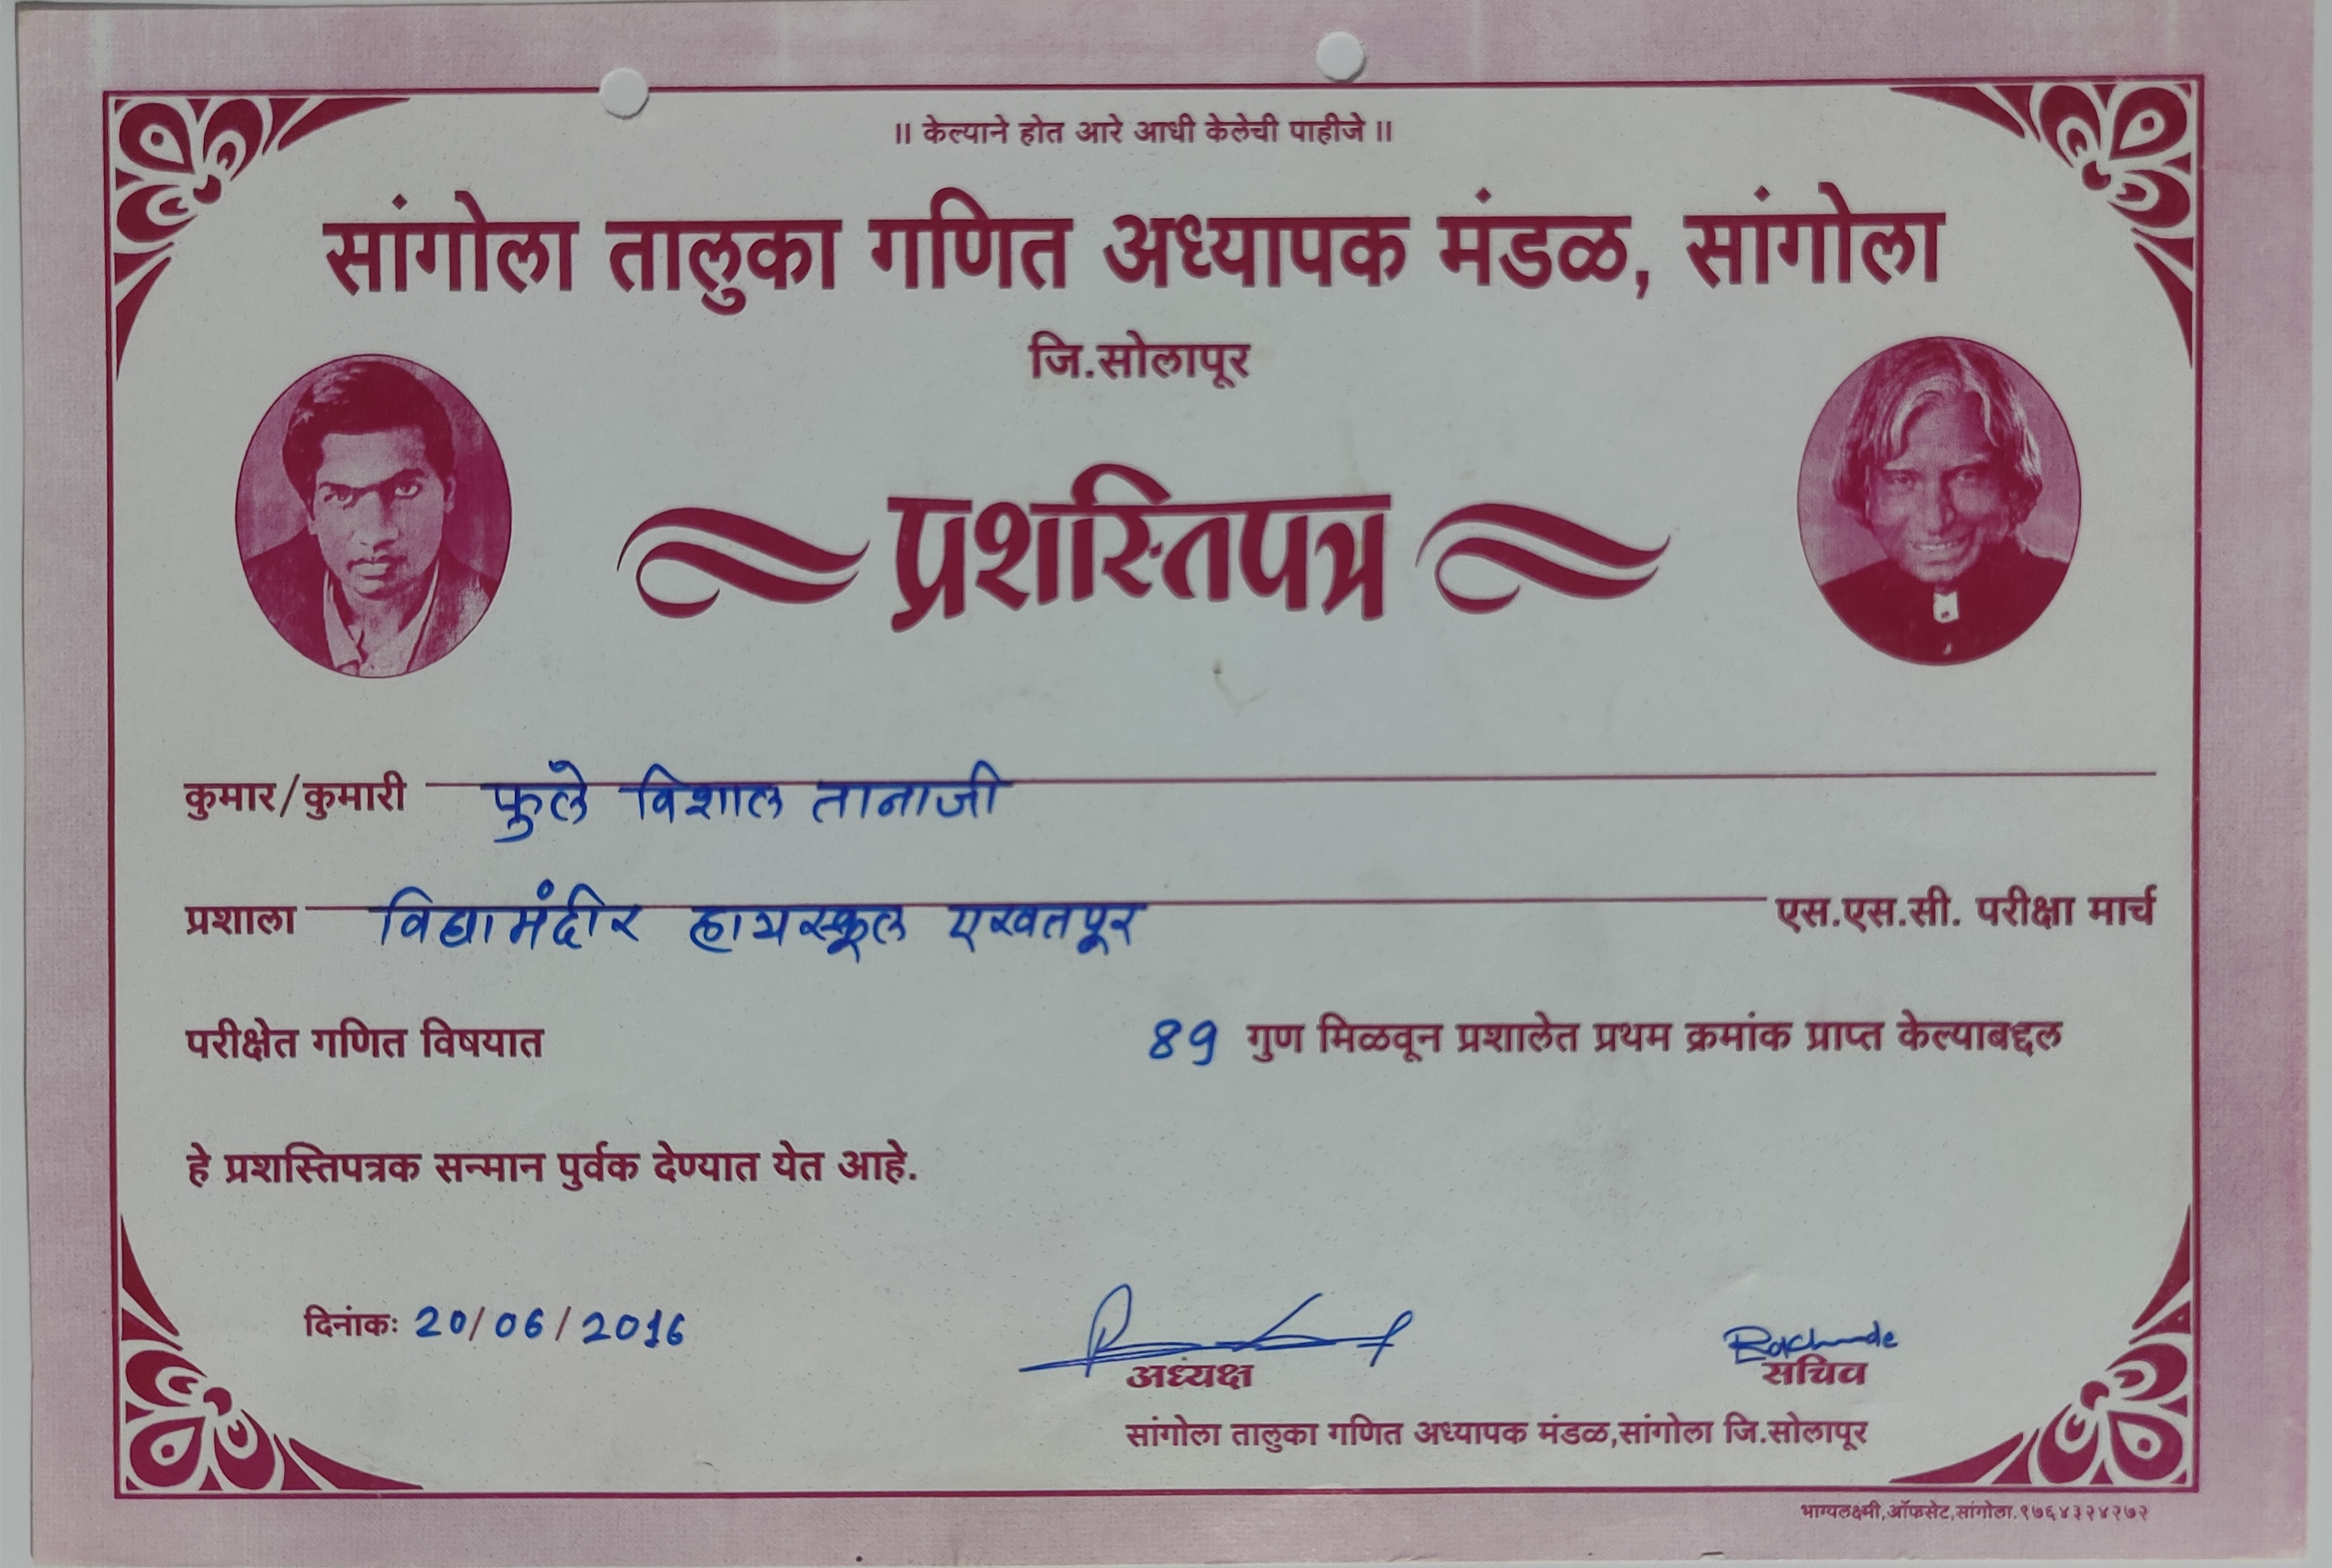 ॥ केल्याने होत आरे आधी केलेची पाहीजे ॥
सांगोला तालुका गणित अध्यापक मंडळ, सांगोला
जि.सोलापूर
प्रशस्तिपत्र
कुमार/कुमारी फुले विशाल तानाजी
प्रशाला विद्यामंदीर हायस्कूल एखतपूर एस.एस.सी. परीक्षा मार्च
परीक्षेत गणित विषयात 89 गुण मिळवून प्रशालेत प्रथम क्रमांक प्राप्त केल्याबद्दल
हे प्रशस्तिपत्रक सन्मान पुर्वक देण्यात येत आहे.
दिनांकः 20/06/2016
अध्यक्ष सचिव
सांगोला तालुका गणित अध्यापक मंडळ,सांगोला जि.सोलापूर
भाग्यलक्ष्मी,ऑफसेट,सांगोला.